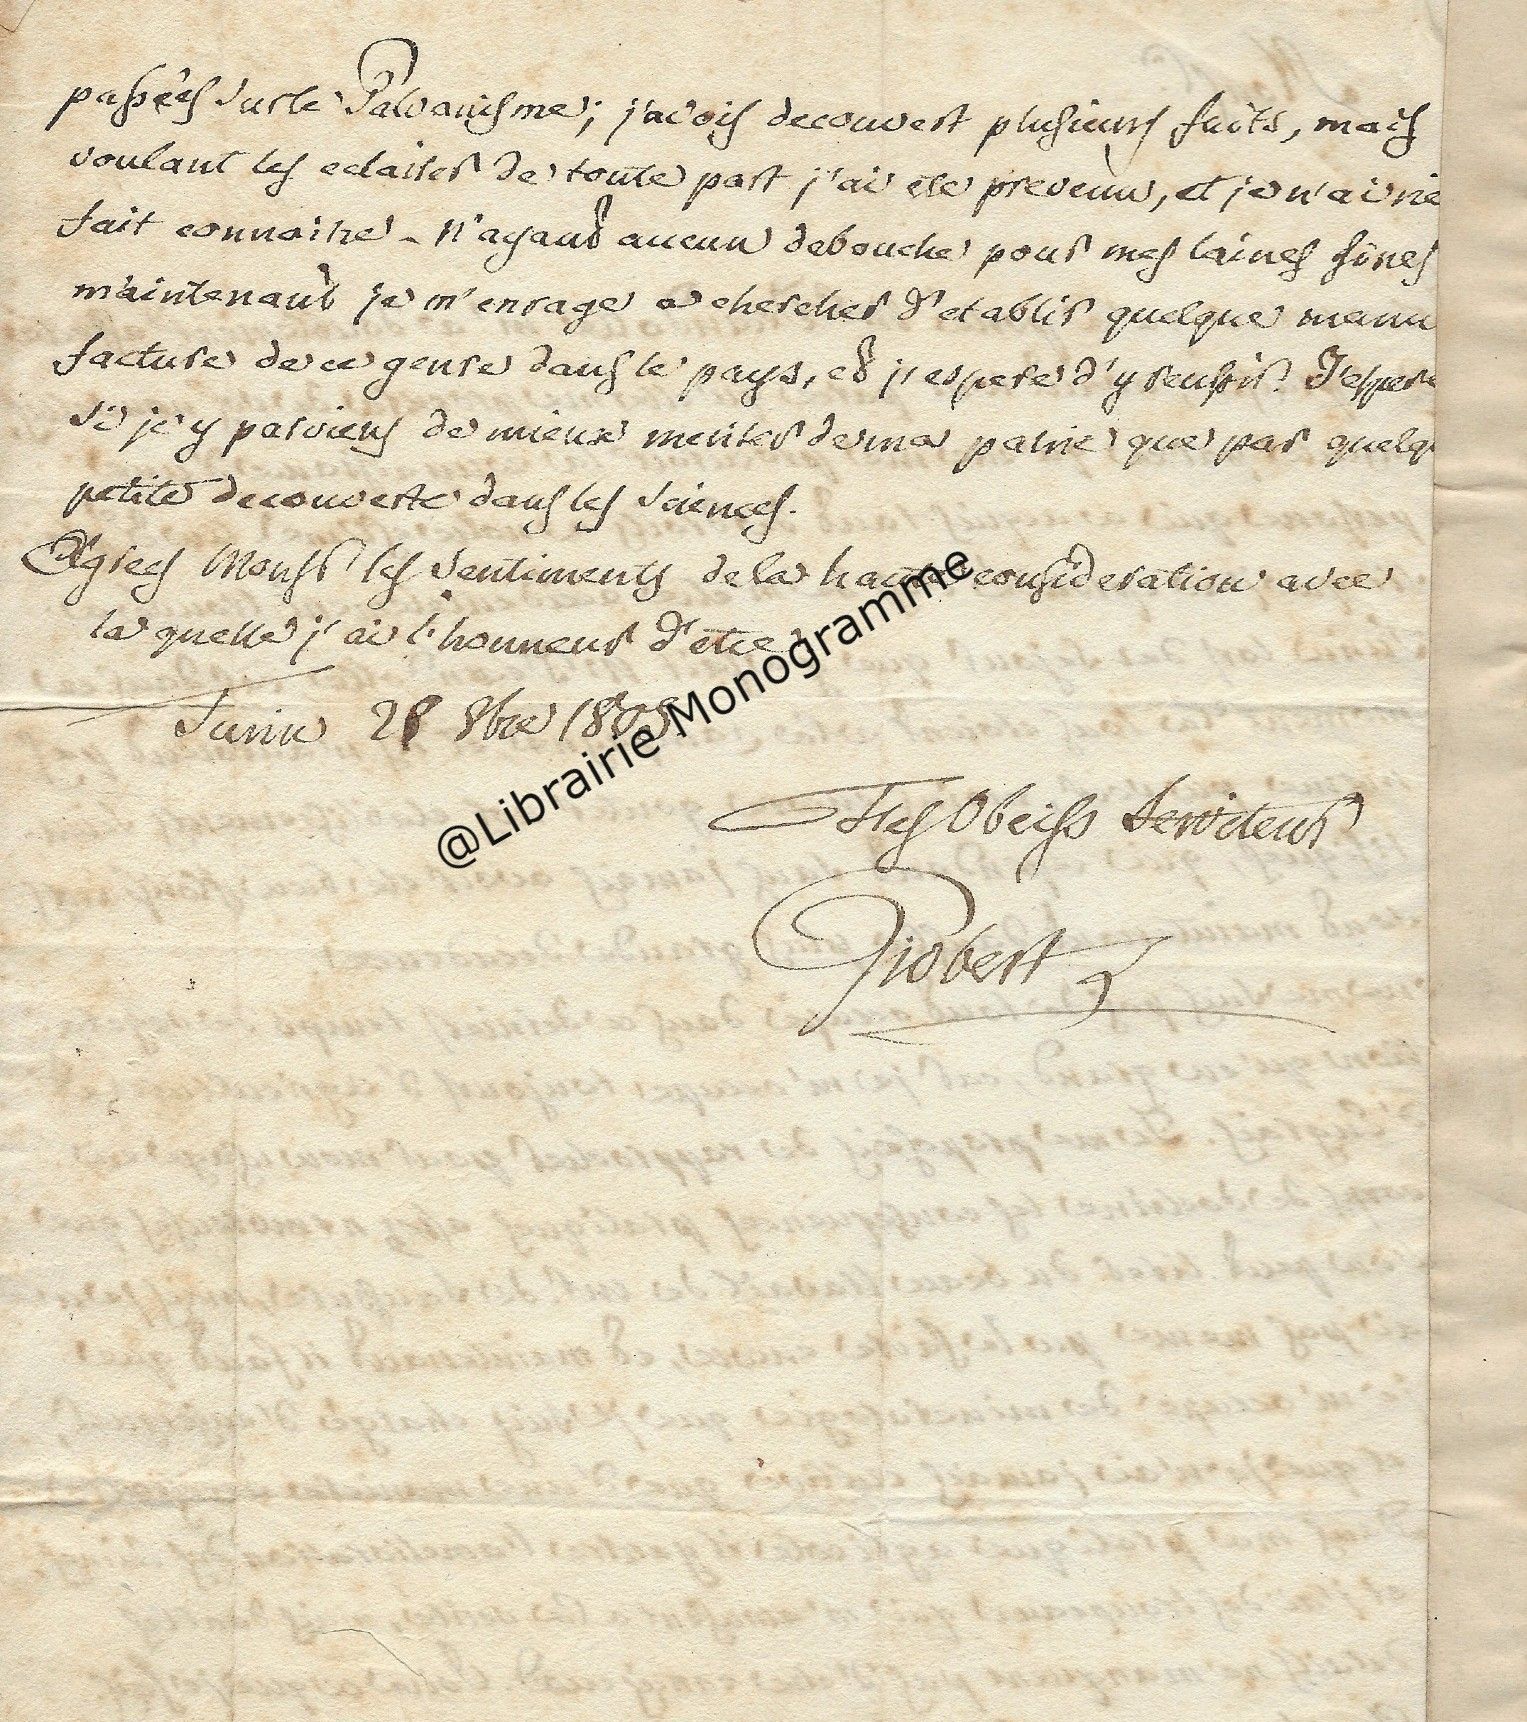 passées sur le Galvanisme; j'avois decouvert plusieurs faits, mais
voulant les eclairer de toute part j'ai eté prevenu, et je n'ai rie
fait connoitre - N'ayant aucun debouche pour mes laines fines
maintenant je m'enrage a chercher d'etablir quelque manu
facture de ce genre dans le pays, et j'espere d'y reussir. J'espere
si je y parviens de mieux meriter de ma patrie que par quelq
petite decouverte dans les sciences.
Agrees Monsr les sentiments de la haute consideration avec
la quelle j'ai l'honneur d'etre
Turin 28 8bre 1808
Tres Obeiss Serviteur
Giobert
@Librairie Monogramme